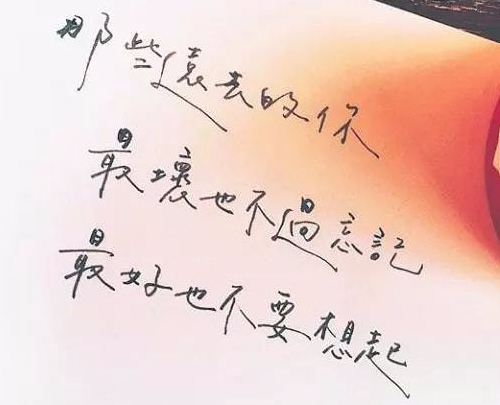 那些遠去的你
最壞也不過忘記
最好也不要想起